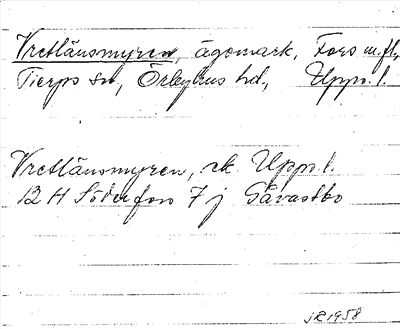 Vretlänsmyren, ägomark, Fors m.fl.,
Tierps sn, Örbyhus hd, Upps. l.
Vretlänsmyren, ek. Upps. l.
12 H Söderfors 7 j Gävastbo
JR 1958